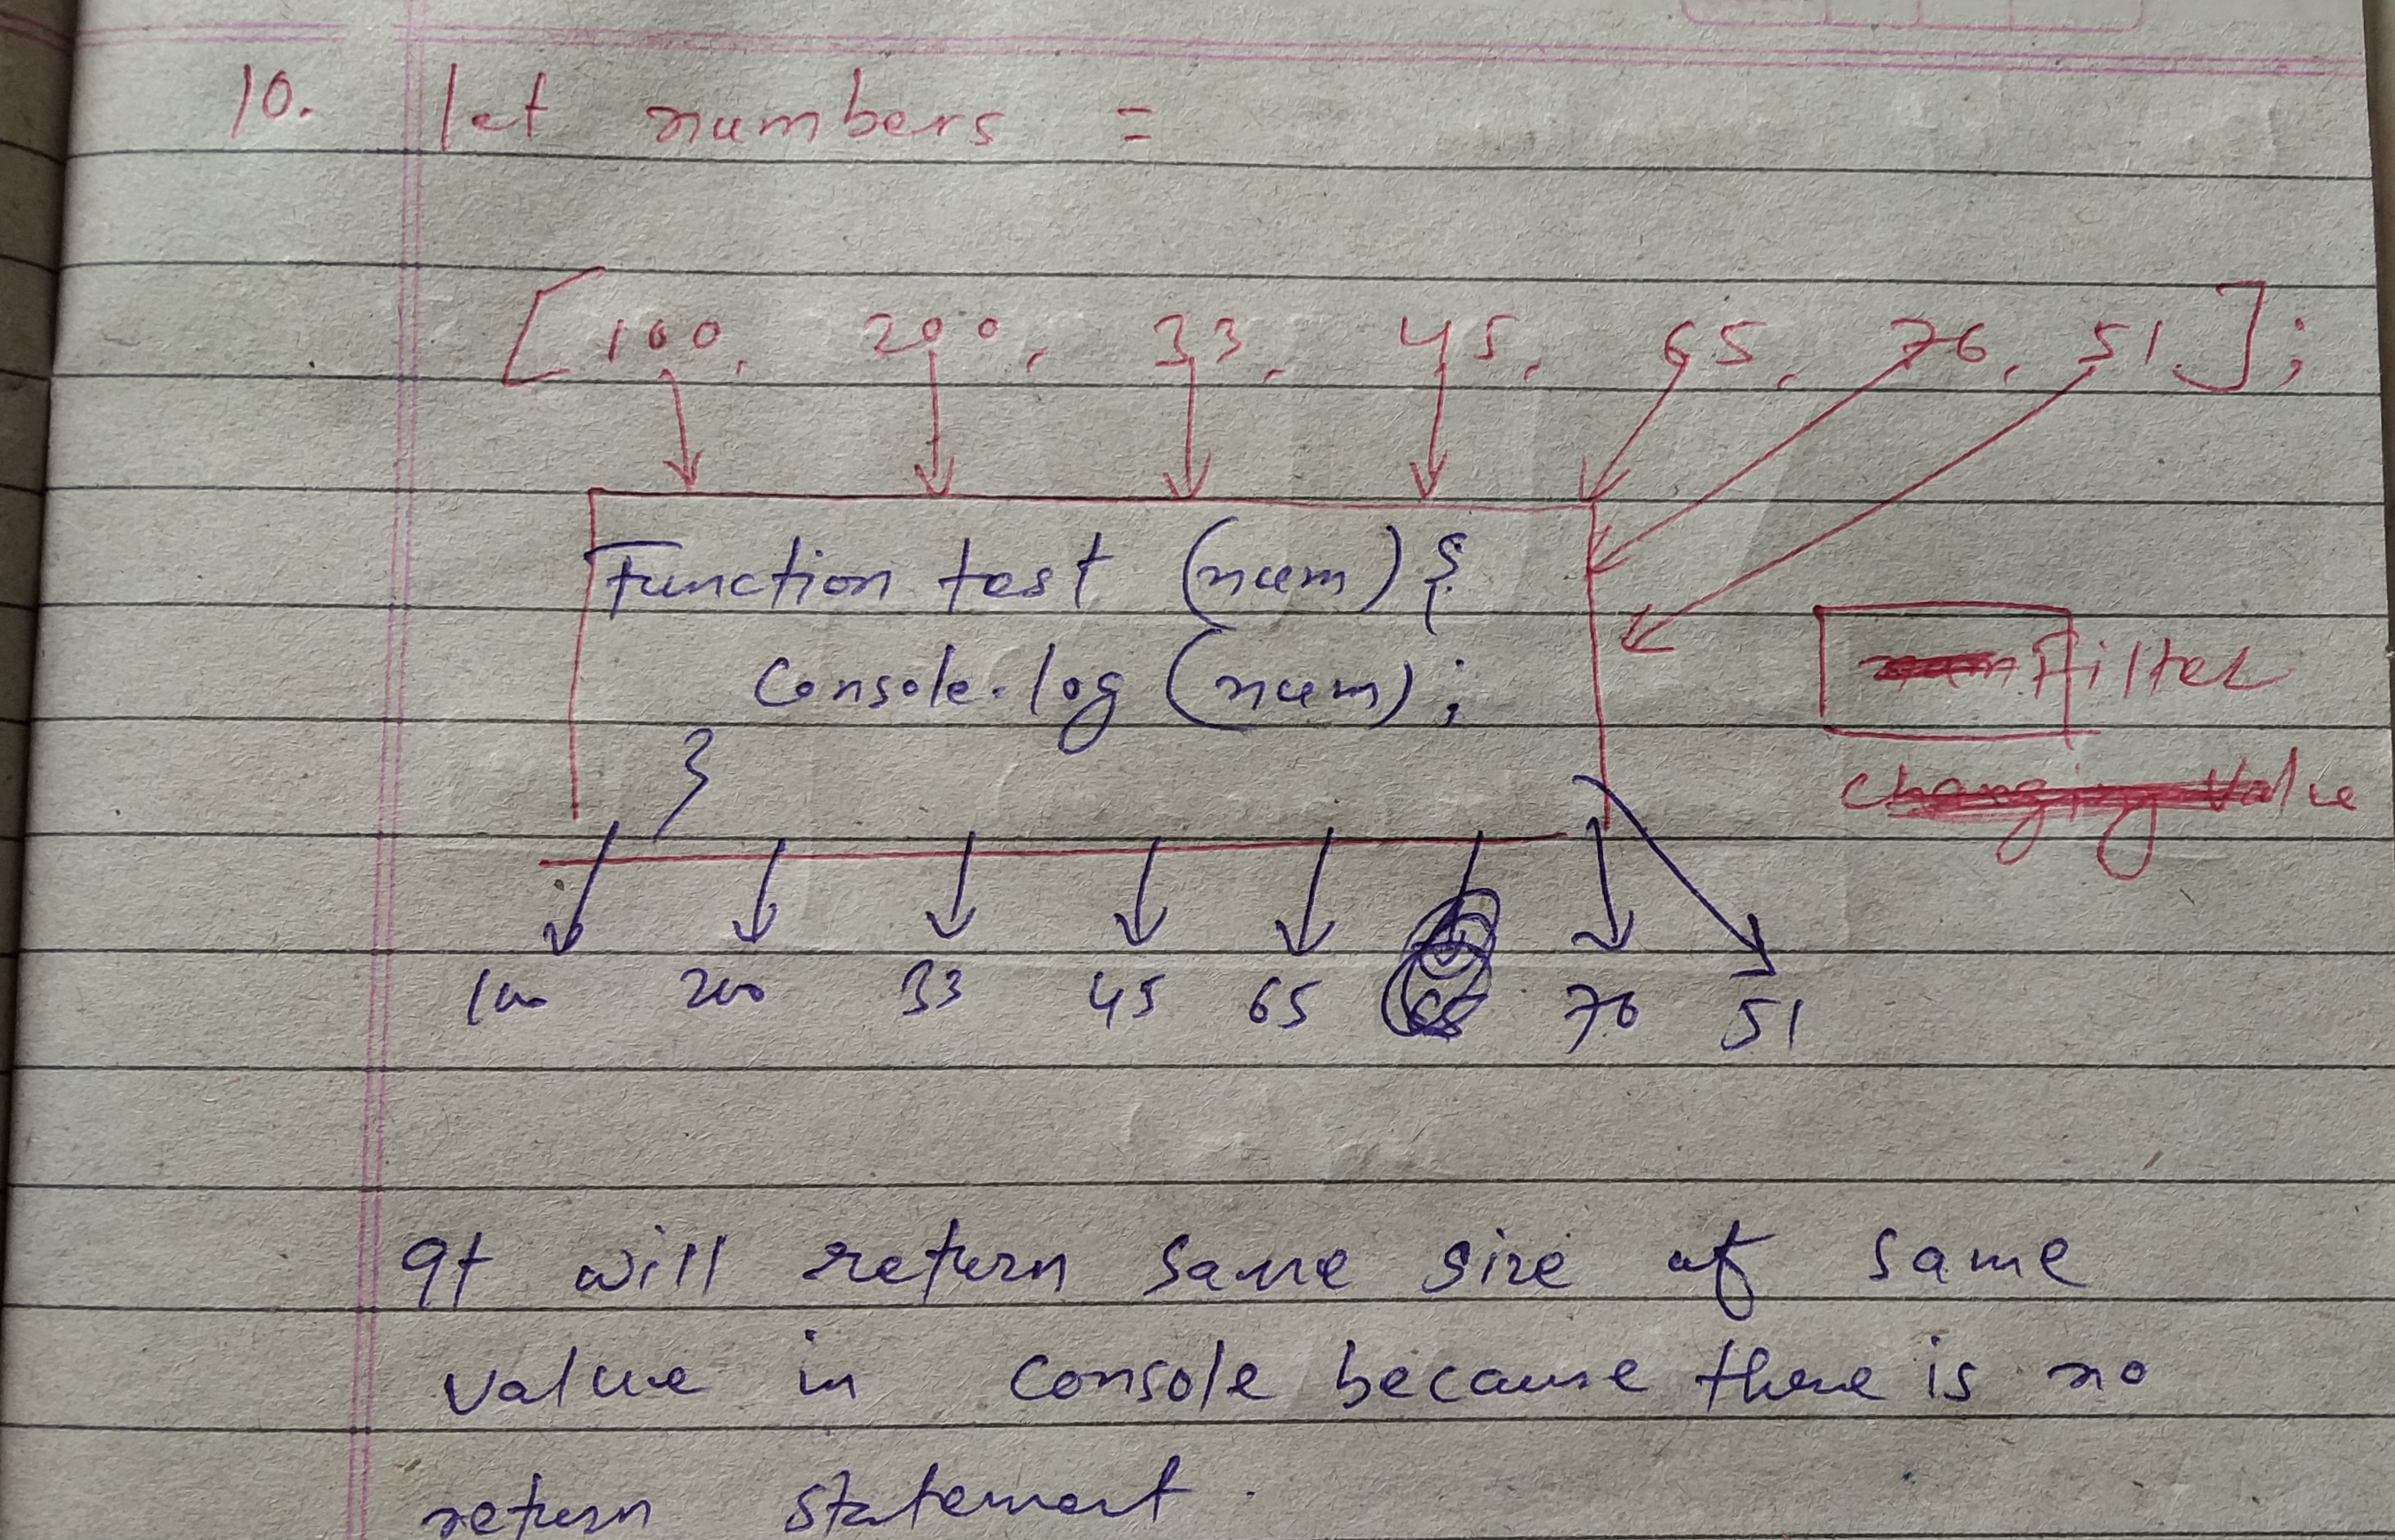 10. let numbers =
[100, 200, 33, 45, 65, 76, 51];
Function test (num) {
Console.log (num);
}
Filter
changing value
100 200 33 45 65 76 51
It will return same size of same
value in console because there is no
return statement.